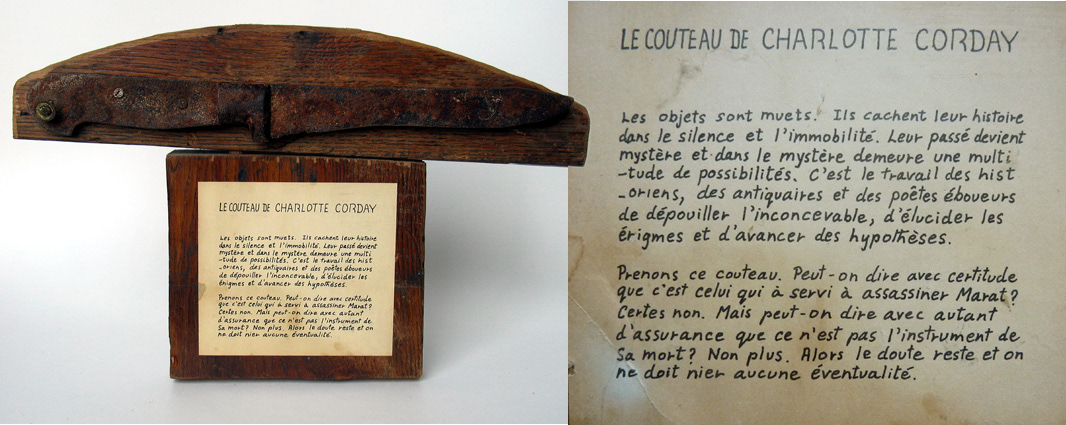 LE COUTEAU DE CHARLOTTE CORDAY
Les objets sont muets. Ils cachent leur histoire
dans le silence et l'immobilité. Leur passé devient
mystère et dans le mystère demeure une multi
-tude de possibilités. C'est le travail des hist
-oriens, des antiquaires et des poêtes éboueurs
de dépouiller l'inconcevable, d'élucider les
érigmes et d'avancer des hypothèses.
Prenons ce couteau. Peut-on dire avec certitude
que c'est celui qui à servi à assassiner Marat?
Certes non. Mais peut-on dire avec autant
d'assurance que ce n'est pas l'instrument de
Sa mort? Non plus. Alors le doute reste et on
ne doit nier aucune éventualité.
LE COUTEAU DE CHARLOTTE CORDAY
Les objets sont muets. Ils cachent leur histoire
dans le silence et l'immobilité. Leur passé devient
mystère et dans le mystère demeure une multi
-tude de possibilités. C'est le travail des hist
-oriens, des antiquaires et des poêtes éboueurs
de dépouiller l'inconcevable, d'élucider les
érigmes et d'avancer des hypothèses.
Prenons ce couteau. Peut-on dire avec certitude
que c'est celui qui à servi à assassiner Marat?
Certes non. Mais peut-on dire avec autant
d'assurance que ce n'est pas l'instrument de
Sa mort? Non plus. Alors le doute reste et on
ne doit nier aucune éventualité.